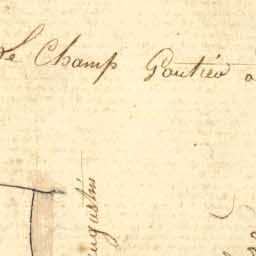 Le Champ Gautier
Augustin